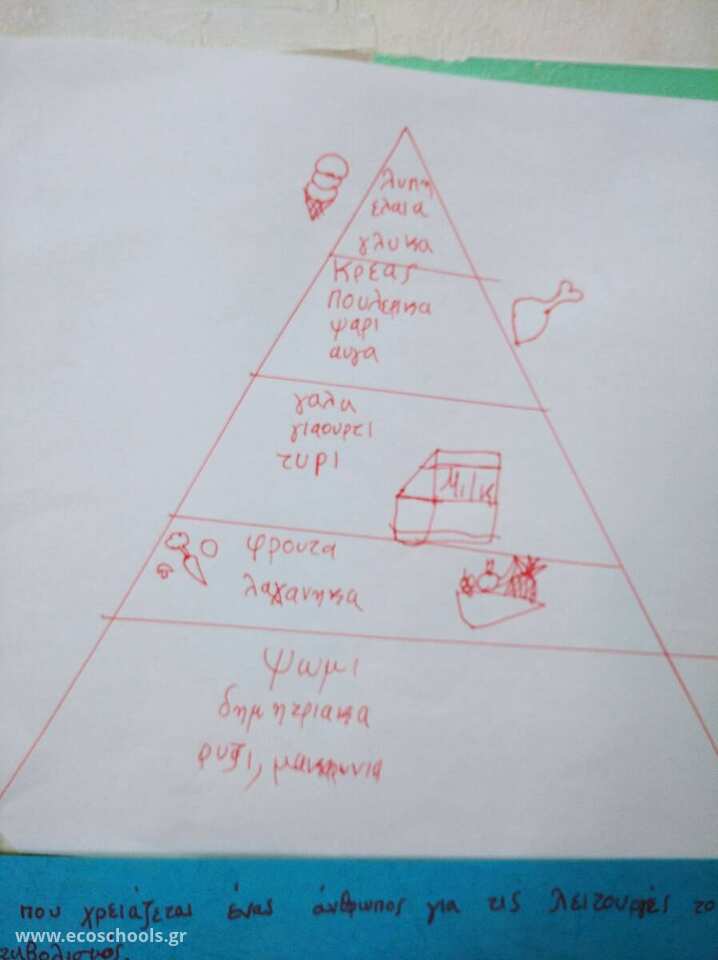 λιπη
ελαια
γλυκα
κρεας
πουλερικα
ψαρι
αυγα
γαλα
γιαουρτι
τυρι
Milk
φρουτα
λαχανικα
ψωμι
δημητριακα
ρυζι, μακαρονια
που χρειάζεται ένας άνθρωπος για τις λειτουργίες το
www.ecoschools.gr